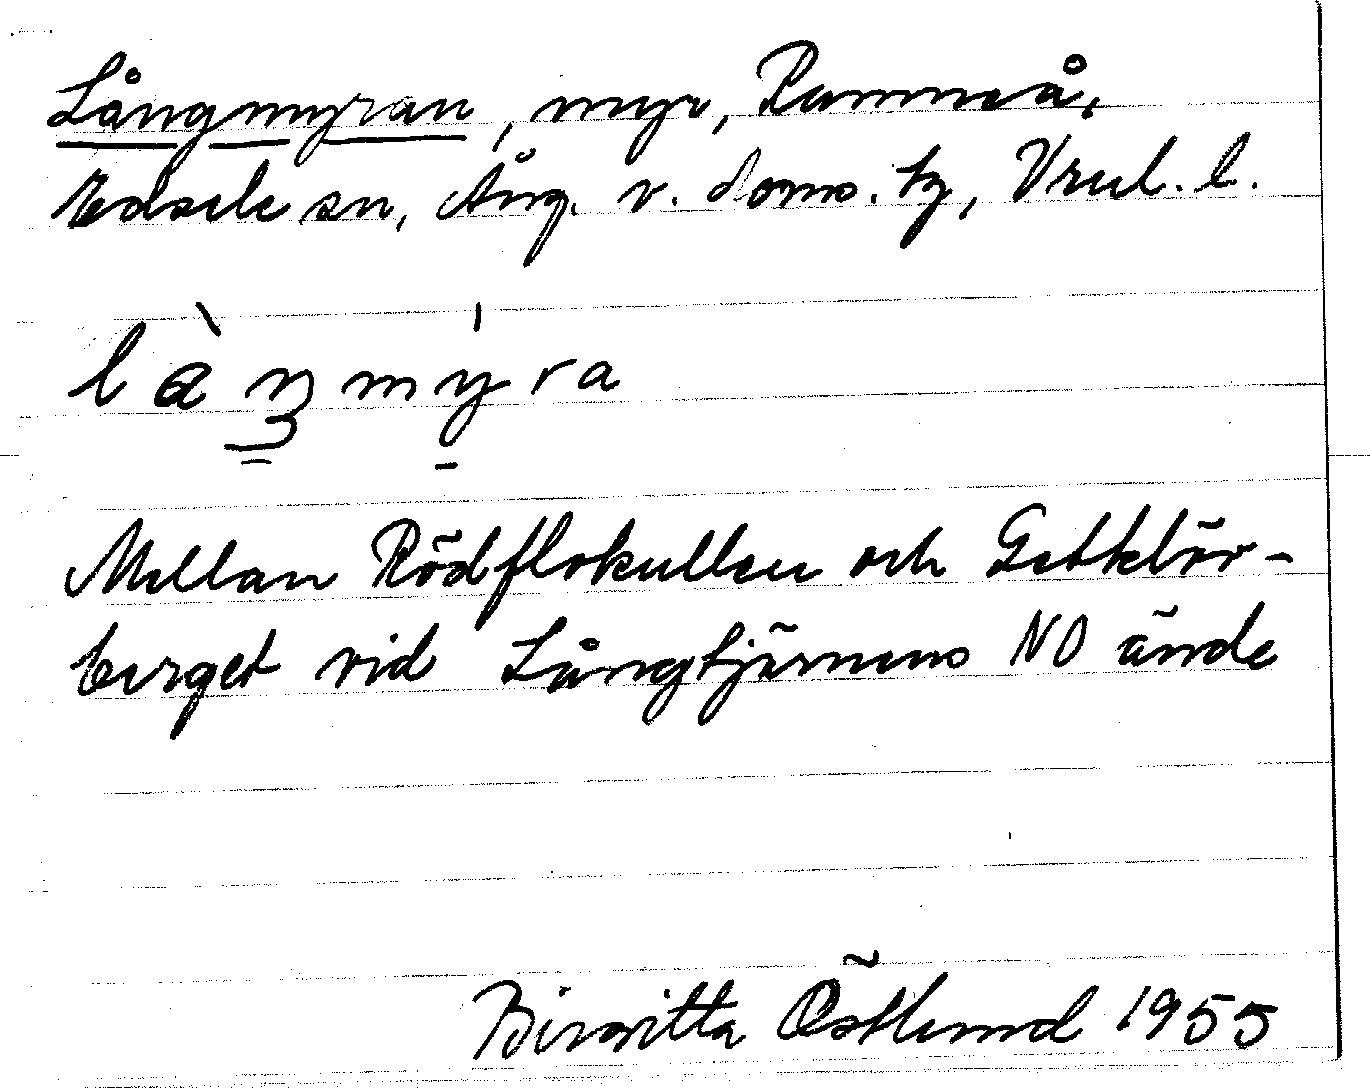 Långmyran, myr, Rammså,
Edsele sn, Ång. v. doms. tg, Vrul. l.
làŋmýra
Mellan Rödflokullen och Getklör-
berget vid Långtjärnens NO ände
Birgitta Östlund 1955